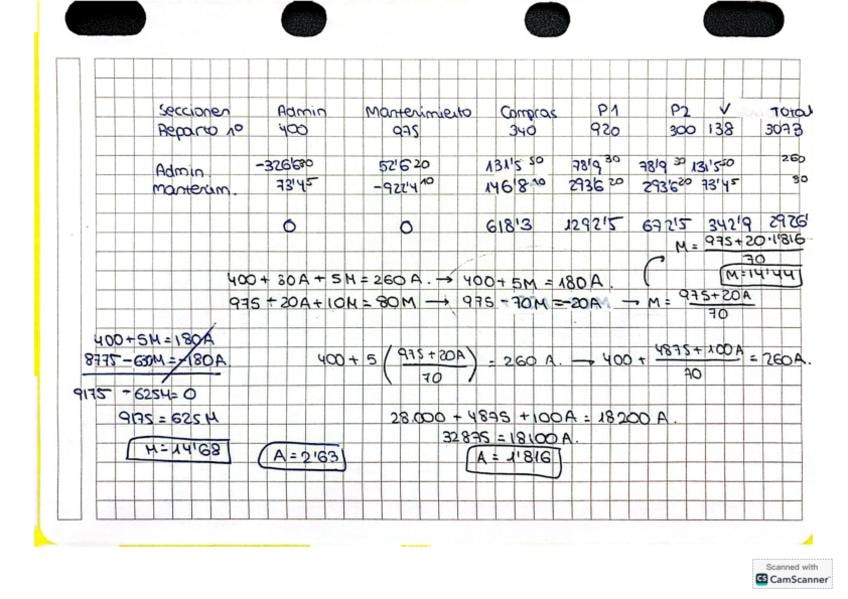 Secciones Admin Mantenimiento Compras P1 P2 V TOTAL
Reparto 1º 400 975 340 920 300 138 3073
Admin. -326'6 80 52'6 20 131'5 50 78'9 30 78'9 30 131'5 50 260
Mantenim. 73'4 5 -922'4 10 146'8 10 293'6 20 293'6 20 73'4 5 80
0 0 618'3 1292'5 672'5 342'9 2926'
M = 975+20·1'816 / 70
M=14'44
400 + 30A + 5M = 260A. → 400 + 5M = 180A.
975 + 20A + 10M = 80M → 975 - 70M = -20A → M = 975+20A / 70
400 + 5M = 180A
8775 - 630M = -180A.
9175 - 625M = 0
9175 = 625M
M = 14'68
A = 2'63
400 + 5 ( 975+20A / 70 ) = 260A. → 400 + 4875 + 100A / 70 = 260A.
28.000 + 4875 + 100A = 18200A.
32875 = 18100A.
A = 1'816
Scanned with
CS CamScanner